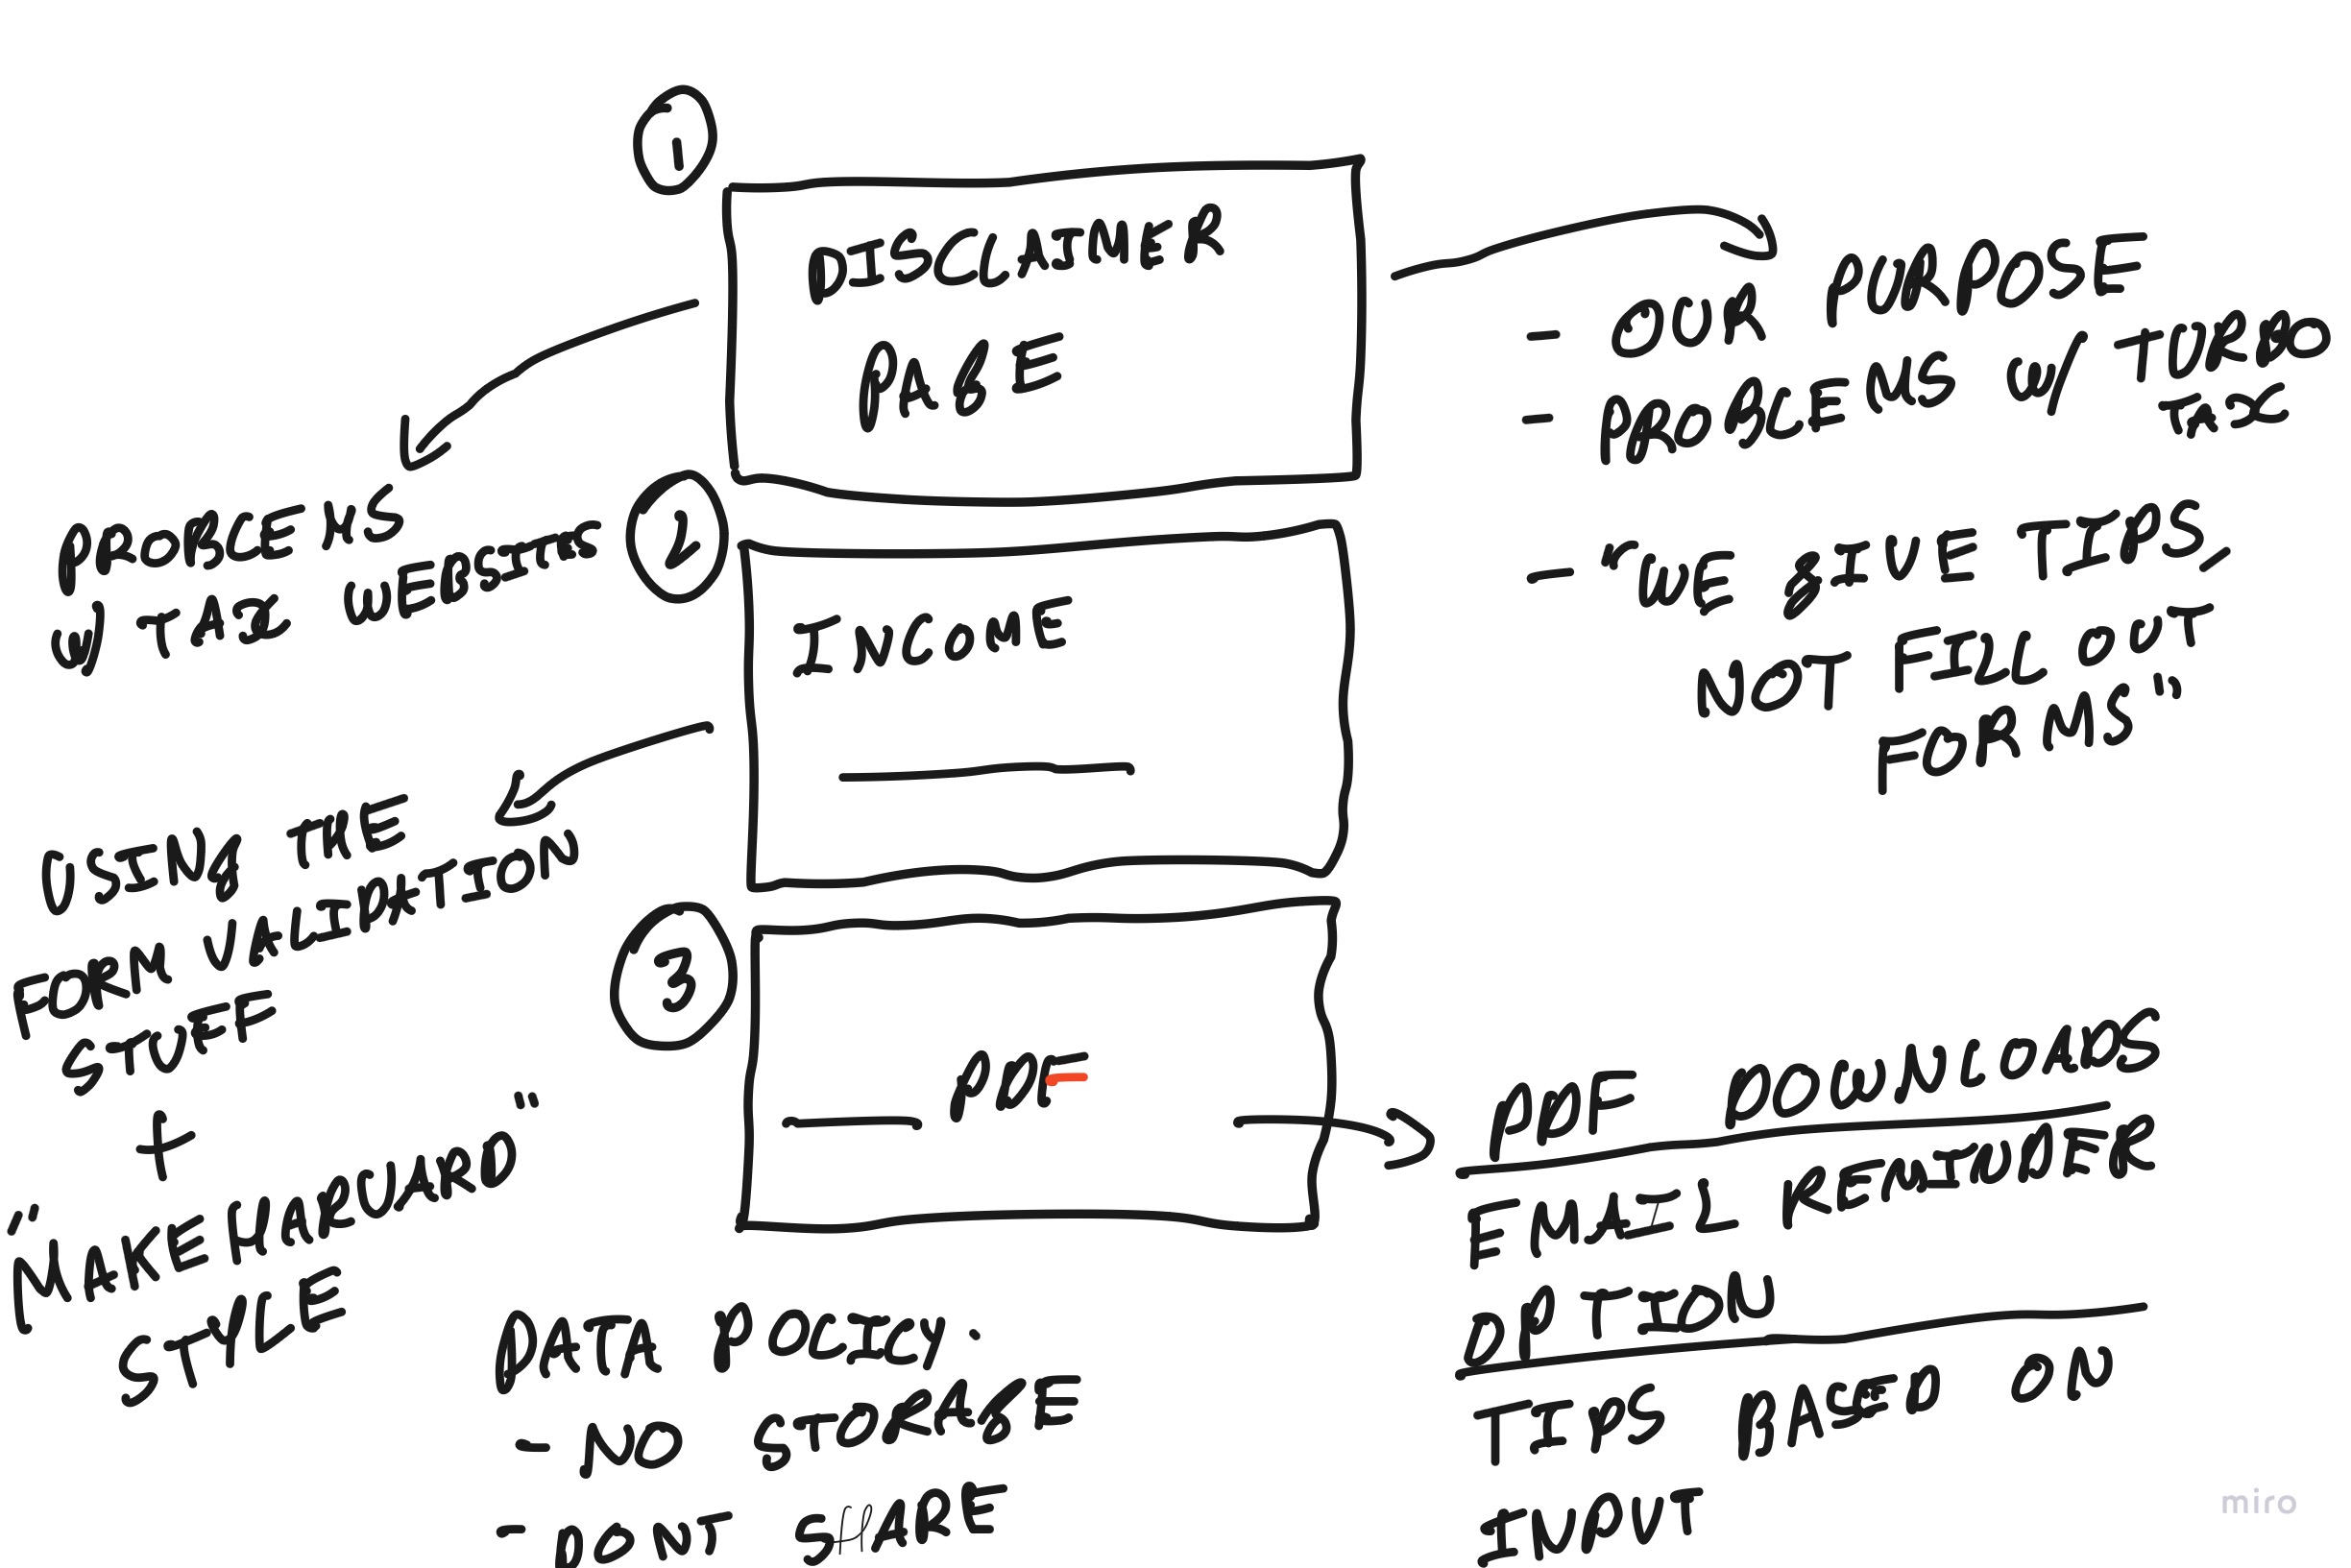 1
DISCLAIMER
PAGE
- OUR PURPOSE
- PROBLEMS W/ TURBO
TAX
- "WE GIVE TIPS,
NOT FILL OUT
FORMS"
PROBLEMS
W/ TAX WEBSITES
2
INCOME
USING THE
FORM VALIDATION
STUFF
+
"MAKE HARVARD"
STYLE
3
PDF
PDF DOWNLOADS
EMAIL REMINDER
OPTION
TIPS BASED ON
INPUT
DATA POLICY:
- NO STORAGE
- DONT SHARE
miro